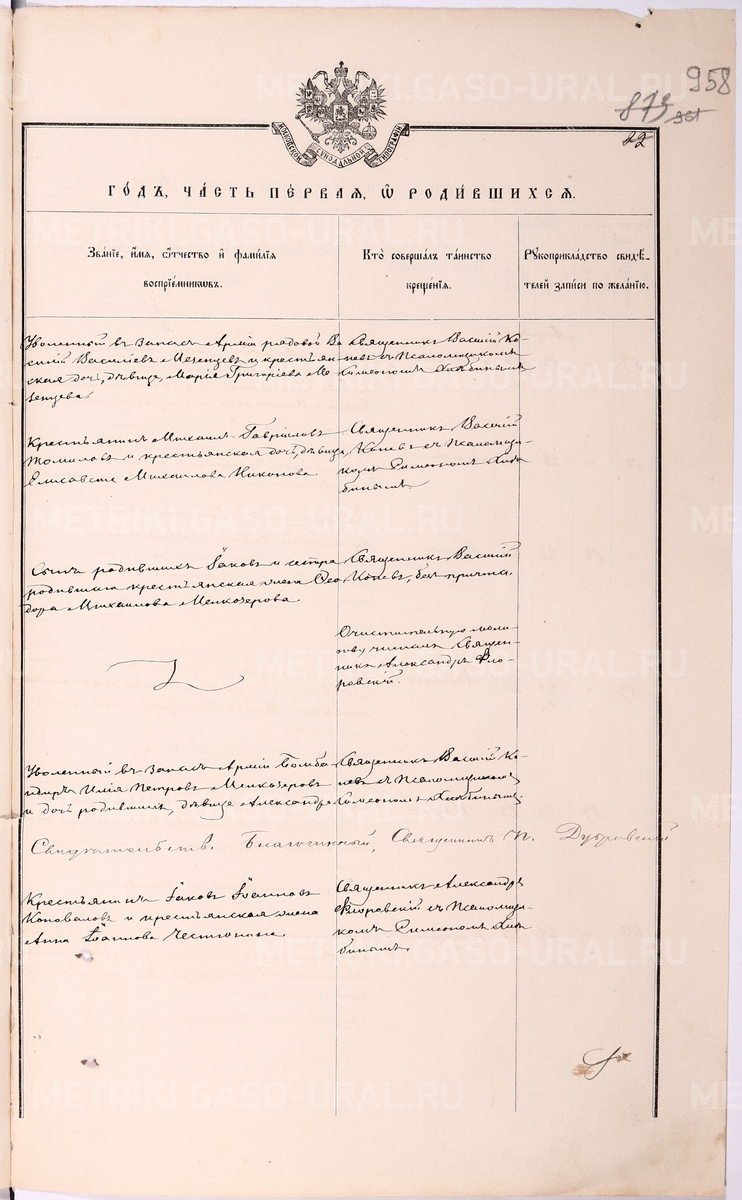 958
873
961
22
МОСКОВСКОЙ СѴНОДАЛЬНОЙ ТИПОГРАФІИ
ГО́ДЪ, ЧА́СТЬ ПЕ́РВАЯ, Ѡ҆ РОДИ́ВШИХСЯ.
Зва́нїе, и҆́мѧ, ѻ҆́тчество и҆ фами́лїѧ
воспрїе́мникѡвъ.
Кто̀ соверша́лъ та́инство
креще́нїѧ.
Рꙋкоприкла́дство свидѣ́-
телей за́писи по жела́нїю.
Уволенный въ запасъ Арміи рядовой Ва
силій Васильевъ Мезенцевъ и крестьян
ская дочь, дѣвица, Марія Григоріева Ме
зенцева.
Священникъ Василій Ко-
невъ съ Псаломщикомъ
Симеономъ Хлѣбинымъ
Крестьянинъ Михаилъ Гавріиловъ
Томиловъ и крестьянская дочь, дѣвица
Елисавета Михаилова Никонова
Священникъ Василій
Коневъ съ Псаломщи-
комъ Симеономъ Хлѣ
бинымъ.
Сынъ родившихъ Іаковъ и сестра
родившаго крестьянская жена Ѳео
дора Михаилова Мелкозерова.
Священникъ Василій
Коневъ, безъ причта.
Очистительную моли
тву читалъ Священ-
никъ Александръ Фло-
ровскій.
Уволенный въ запасъ Арміи Бомба
рдиръ Илія Петровъ Мелкозеровъ
и дочь родившихъ, дѣвица Александра
Священникъ Василій Ко-
невъ съ Псаломщикомъ
Симеономъ Хлѣбинымъ.
Свидѣтельств. Благочинный, Священникъ П. Дубровскій
Крестьянинъ Іаковъ Іоанновъ
Коноваловъ и крестьянская жена
Анна Іоаннова Честюнина.
Священникъ Александръ
Флоровскій съ Псаломщи-
комъ Симеономъ Хлѣ
бинымъ.
METRIKI.GASO-URAL.RU